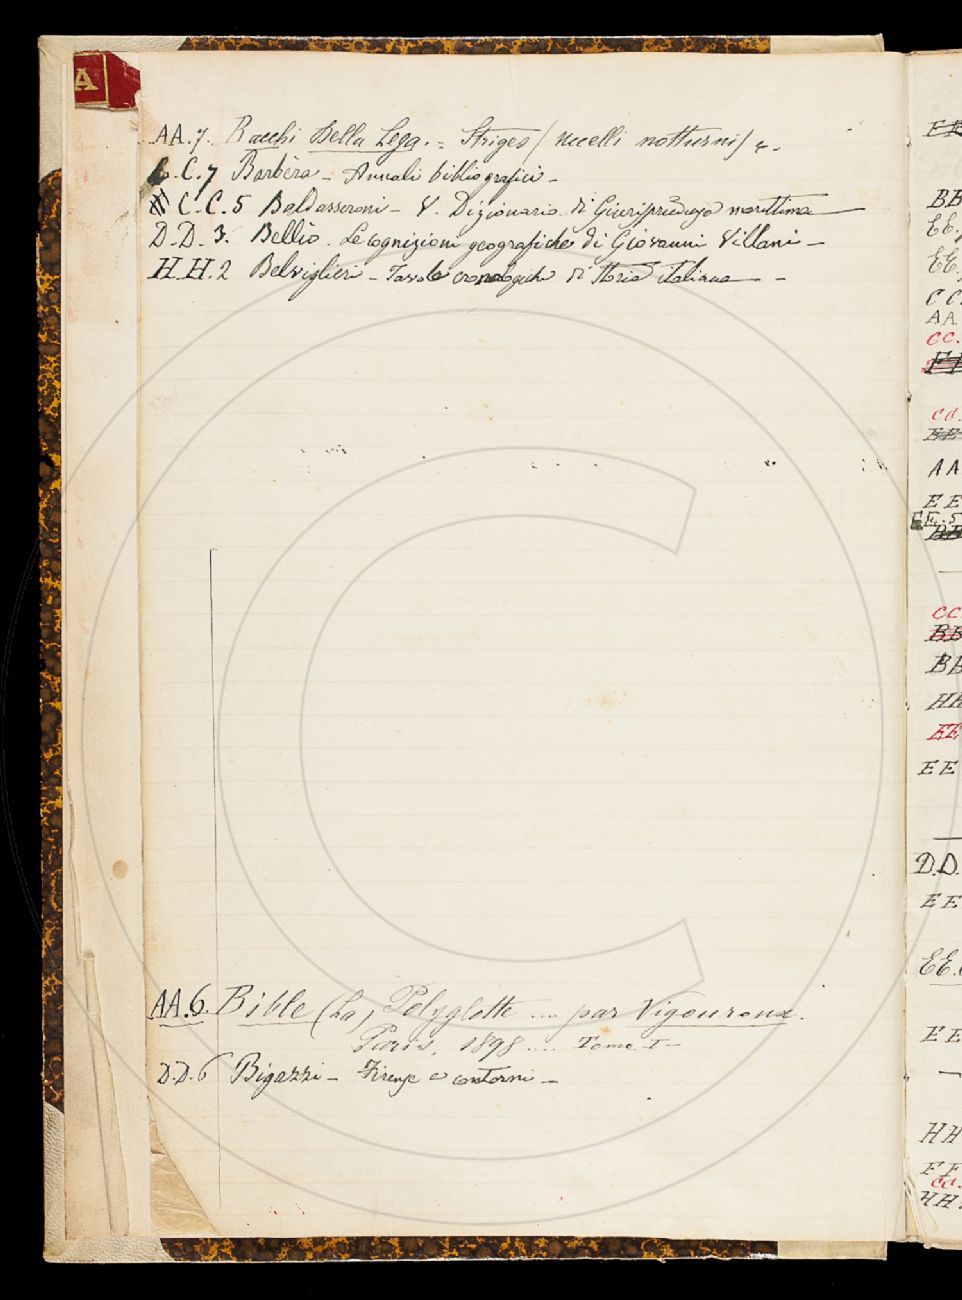 A
AA.7. Bacchi Della Lega. = Striges / Uccelli notturni /
C.7 Barbèra - Annali bibliografici -
C.C.5 Baldasseroni - V. Dizionario di Giurisprudenza marittima
D.D.3. Bellio. Le cognizioni geografiche di Giovanni Villani -
H.H.2 Belviglieri - Tavole cronologiche di Storia italiana - -
AA.6. Bible (La) Polyglotte .... par Vigouroux.
Paris, 1898 .... Tome I -
D.D.6 Bigazzi - Firenze e contorni -
BB
EE.
EE.
CC.
AA
CC.
EE
AA
EE
EE.5
CC
BB
BB
HH
EE
EE
D.D.
EE
EE.
EE
HH
FF
HH.